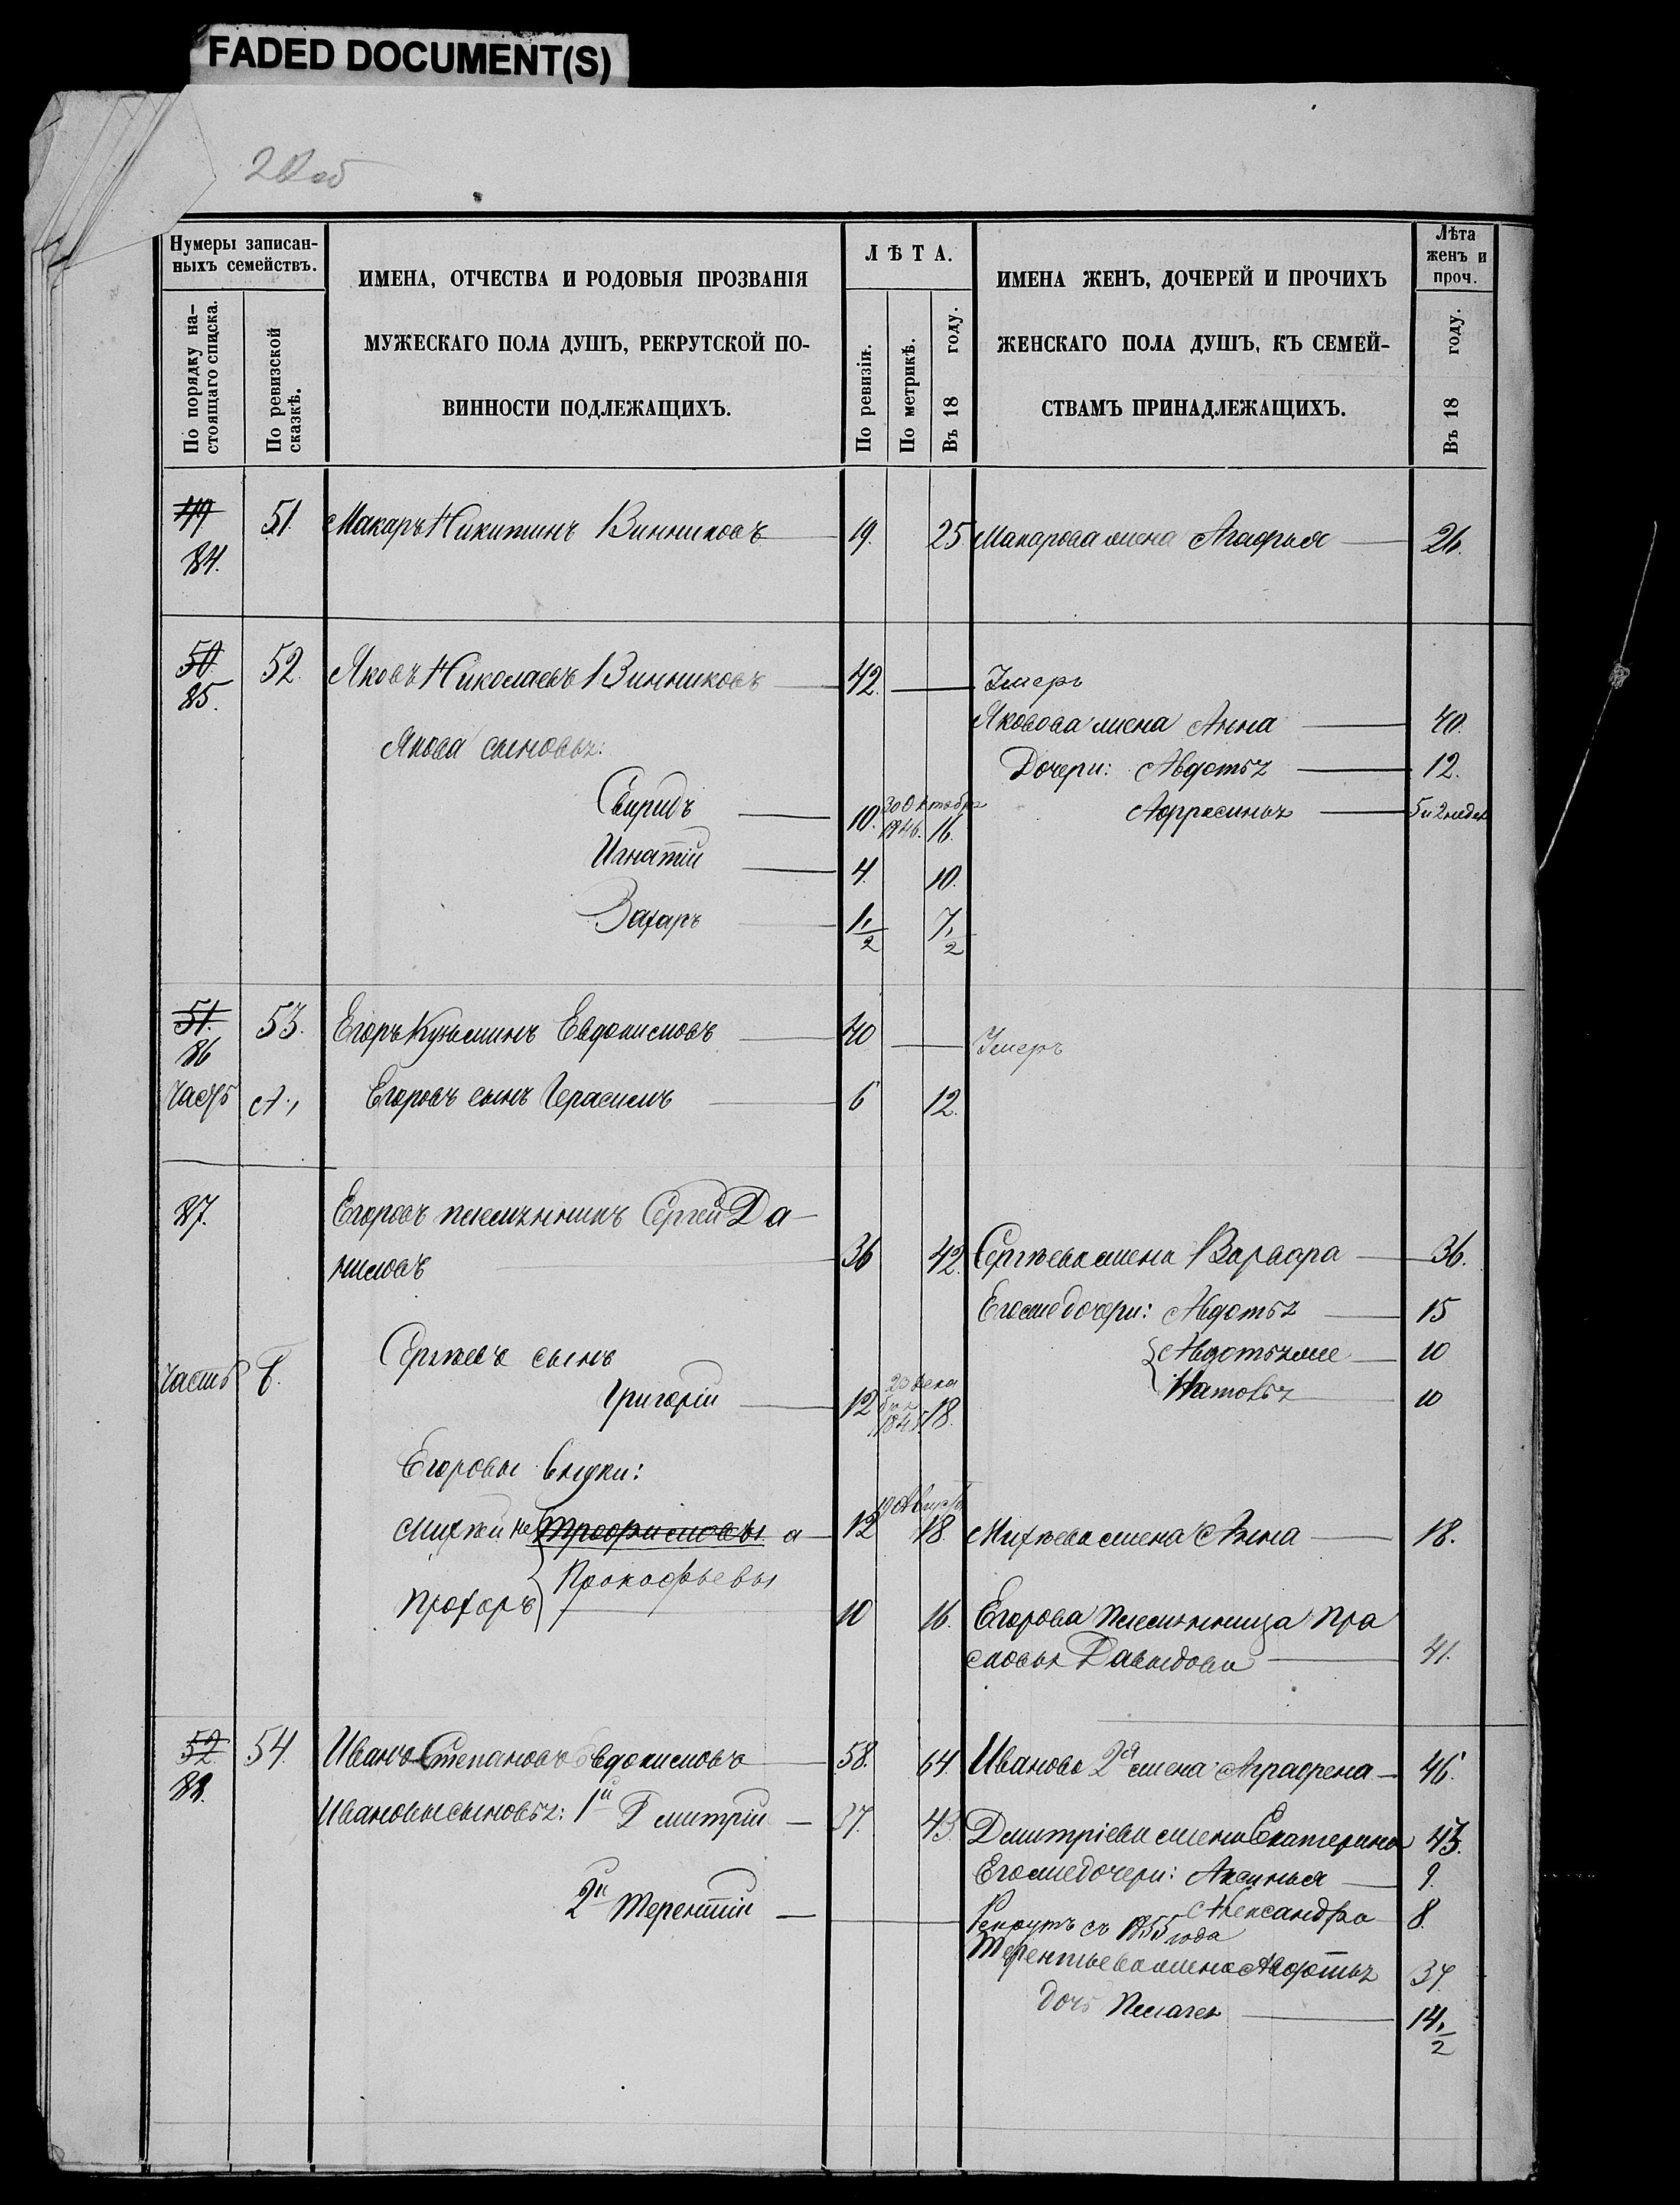 FADED DOCUMENT(S)
Нумеры записан-
ныхъ семействъ.
По порядку на-
стоящаго списка.
По ревизской
сказкѣ.
ИМЕНА, ОТЧЕСТВА И РОДОВЫЯ ПРОЗВАНІЯ
МУЖЕСКАГО ПОЛА ДУШЪ, РЕКРУТСКОЙ ПО-
ВИННОСТИ ПОДЛЕЖАЩИХЪ.
ЛѢТА.
По ревизіи.
По метрикѣ.
Въ 18 году.
ИМЕНА ЖЕНЪ, ДОЧЕРЕЙ И ПРОЧИХЪ
ЖЕНСКАГО ПОЛА ДУШЪ, КЪ СЕМЕЙ-
СТВАМЪ ПРИНАДЛЕЖАЩИХЪ.
Лѣта
женъ и
проч.
Въ 18 году.
49 51. Макаръ Никитинъ Винниковъ 19. 25 Макарова жена Агафья 26.
84.
50 52. Яковъ Николаевъ Винниковъ 42. Умеръ
85. Яковова жена Анна 40.
Якова сыновья:
Дочери: Авдотья 12.
Свиридъ 10. 30 Октября 1846. 16. Афросинья 5 и 2 недѣл
Игнатій 4. 10.
Захаръ 1 1/2 7 1/2
51. 53. Егоръ Кузьминъ Евдокимовъ 40 Умеръ
86
Часть А., Егоровъ сынъ Герасимъ 6 12.
87. Егоровъ племянникъ Сергей Да-
ниловъ 36 42. Сергѣева жена Варвара 36.
Егоже дочери: Авдотья 15
Сергѣевъ сынъ Авдотья же 10
Часть Б. Григорій 12 20 дека бря 1845. 18. 10
Егоровы внуки:
Михѣй Трофимовы 12 19 Август 18. Михѣева жена Анна 18.
Прокофьевы
Прохоръ 10 16. Егорова племянница Пра
сковья Давыдова 41.
52 54. Иванъ Степановъ Евдокимовъ 58. 64. Иванова 2я жена Аграфена 46.
88.
Ивановы сыновья: 1й Дмитрій 37. 43 Дмитріева жена Екатерина 43.
Егоже дочери: Аксинья 9.
2й Терентій Александра 8.
Рекрутъ съ 1855 года
Терентьева жена Авдотья 37.
дочь Пелагея 14 1/2